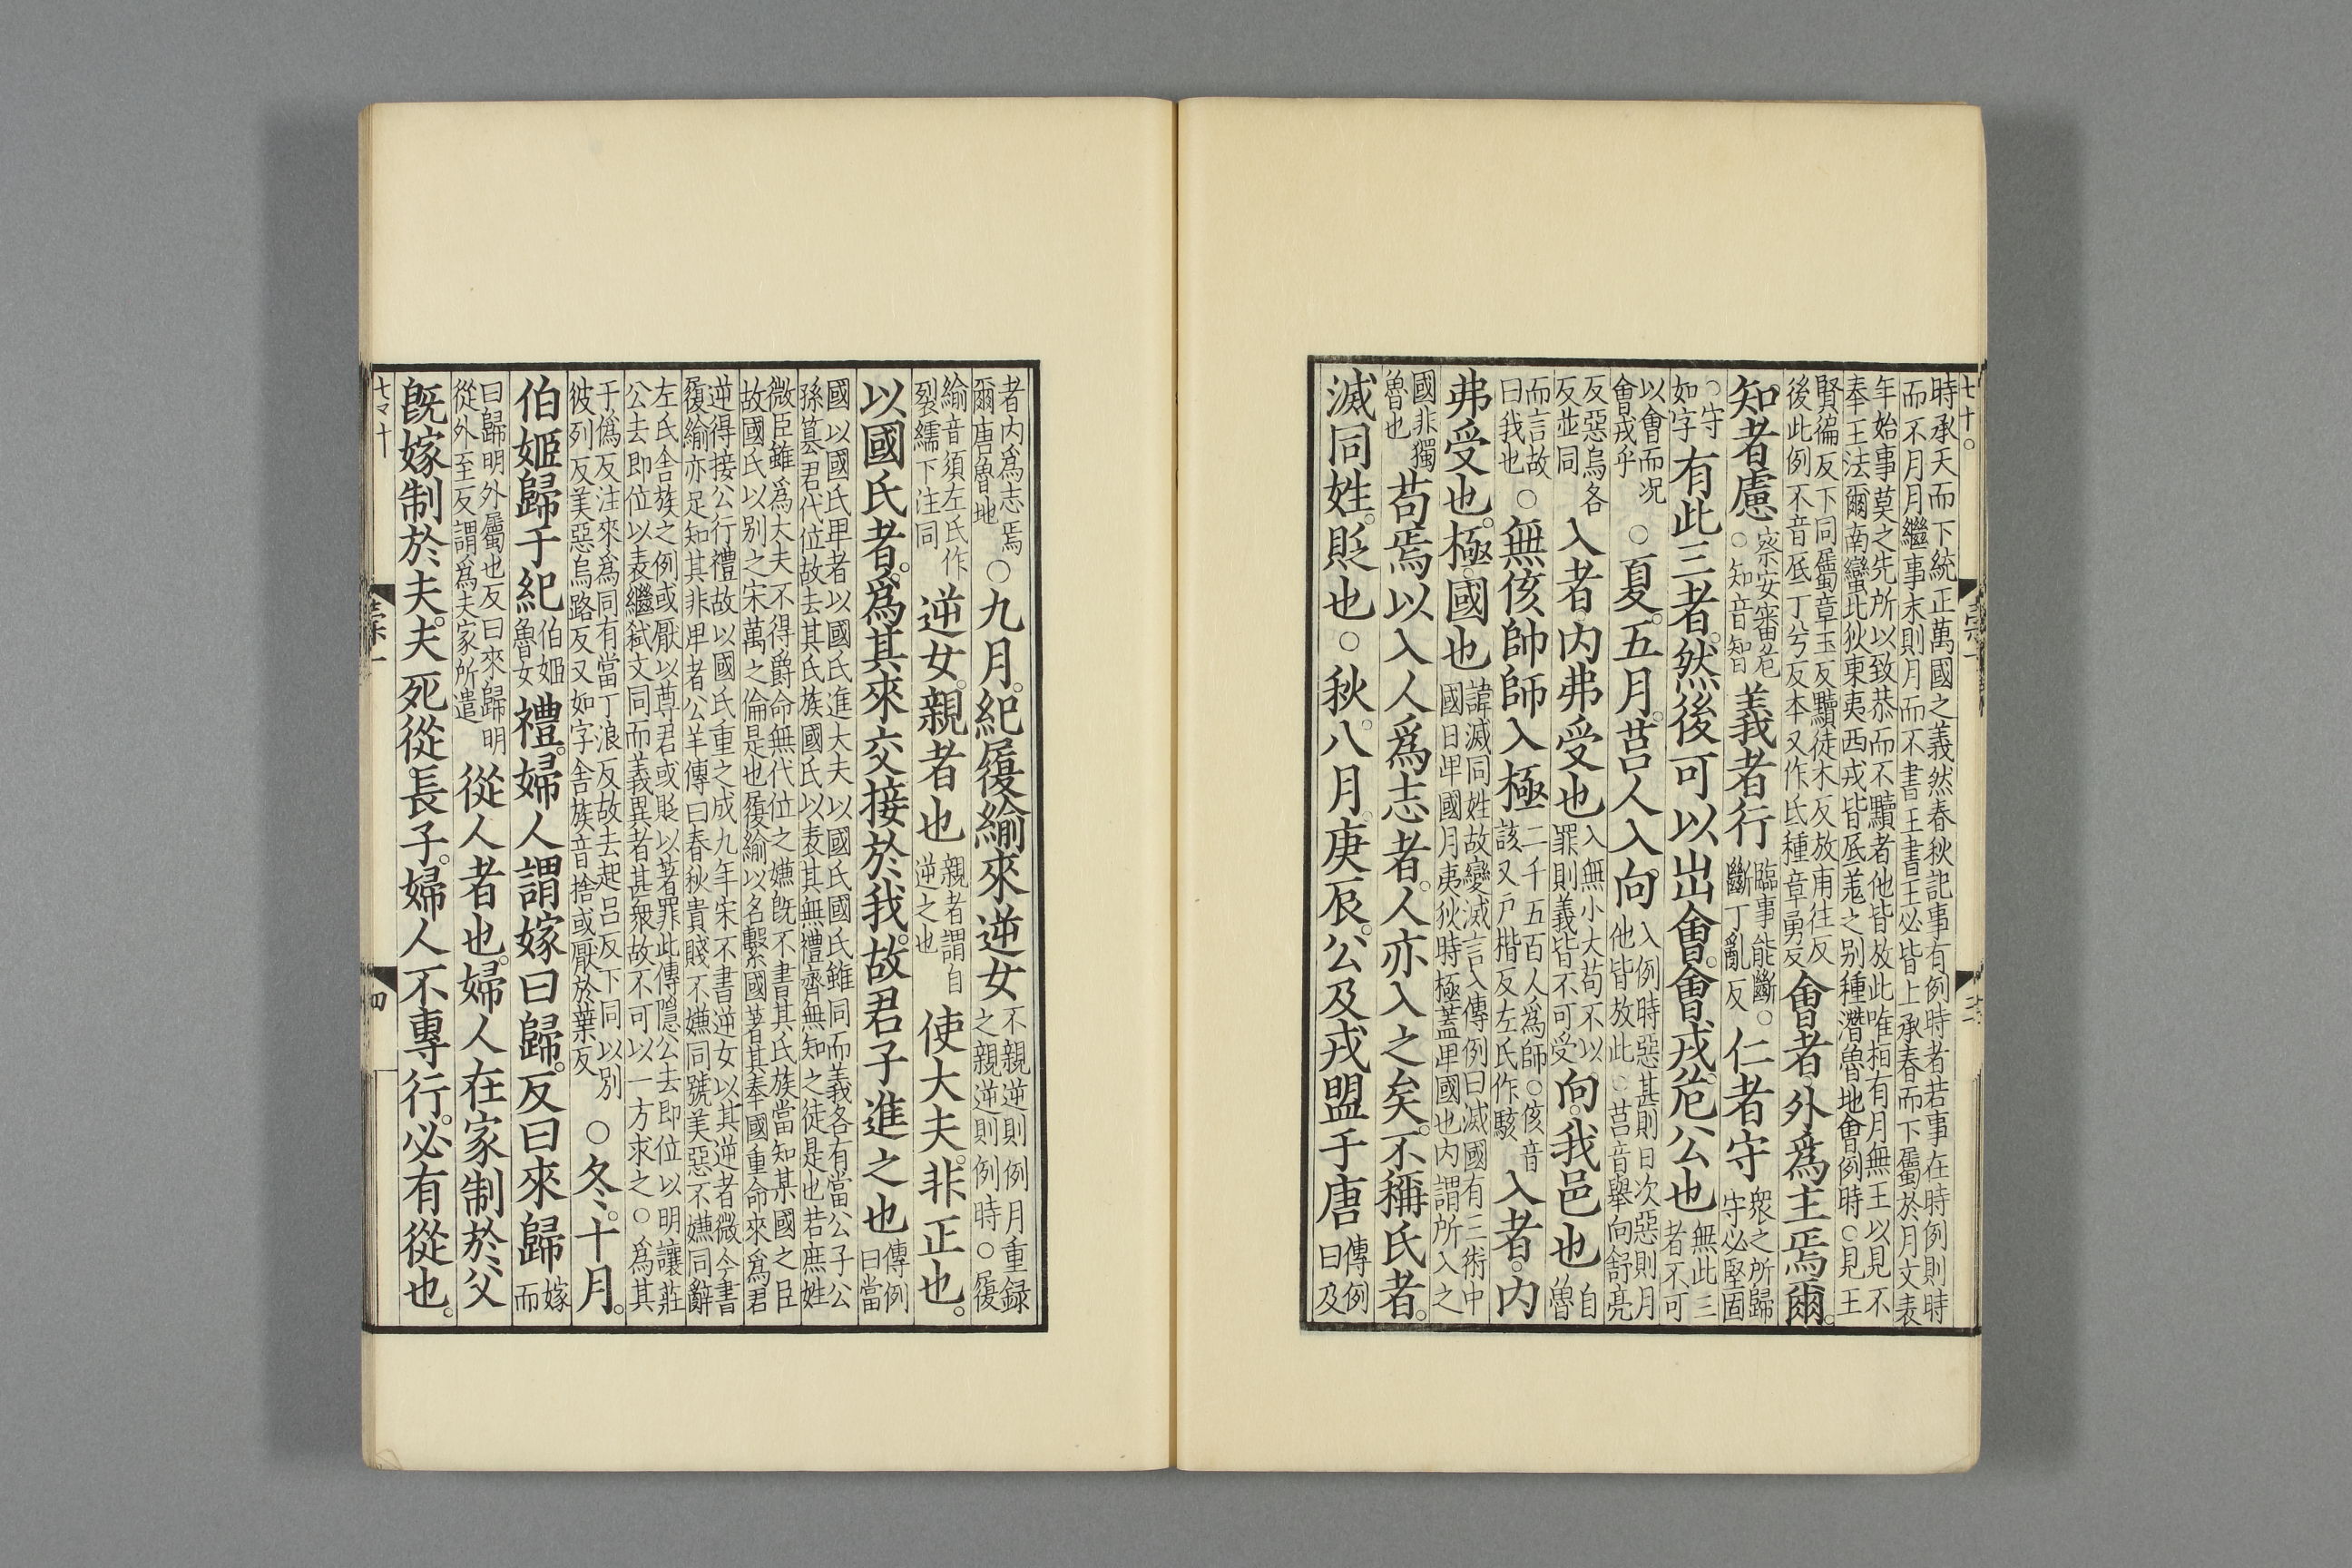 七十。
時承天而下統正萬國之義然春秋記事有例時者若事在時例則時
而不月月繼事末則月而不書王書王必皆上承春而下屬於月文表
年始事莫之先所以致恭而不黷者他皆放此唯桓有月無王以見不
奉王法爾南蠻北狄東夷西戎皆厎羌之别種潛魯地會例時○見王
賢徧反下同屬章玉反黷徒木反放甫往反
後此例不音厎丁兮反本又作氐種章勇反
會者。外爲主焉爾。
知者慮
察安審危
○知音智
義者行
臨事能斷○
斷丁亂反
仁者守
衆之所歸
守必堅固
○守
如字
有此三者。然後可以出會。會戎。危公也
無此三
者不可
以會而况
會戎乎
○夏。五月。莒人入向
入例時惡甚則日次惡則月
他皆放此○莒音舉向舒亮
反惡烏各
反並同
入者。内弗受也
入無小大苟不以
罪則義皆不可受
向。我邑也
自
魯
而言故
曰我也
○無侅帥師入極
二千五百人爲師○侅音
該又戸楷反左氏作駭
入者。内
弗受也。極。國也
諱滅同姓故變滅言入傳例曰滅國有三術中
國日卑國月夷狄時極蓋卑國也内謂所入之
國非獨
魯也
苟焉以入人爲志者。人亦入之矣。不稱氏者。
滅同姓。貶也○秋。八月。庚辰。公及戎盟于唐
傳例
曰及
者内爲志焉
爾唐魯地
○九月。紀履緰來逆女
不親逆則例月重録
之親逆則例時○履
緰音須左氏作
裂繻下注同
逆女。親者也
親者謂自
逆之也
使大夫。非正也。
以國氏者。爲其來交接於我。故君子進之也
傳例
曰當
國以國氏卑者以國氏進大夫以國氏國氏雖同而義各有當公子公
孫簒君代位故去其氏族國氏以表其無禮齊無知之徒是也若庶姓
微臣雖爲大夫不得爵命無代位之嫌旣不書其氏族當知某國之臣
故國氏以别之宋萬之倫是也履緰以名繫國著其奉國重命來爲君
逆得接公行禮故以國氏重之成九年宋不書逆女以其逆者微今書
履緰亦足知其非卑者公羊傳曰春秋貴賤不嫌同號美惡不嫌同辭
左氏舍族之例或厭以尊君或貶以著罪此傳隱公去即位以明讓莊
公去即位以表繼弑文同而義異者甚衆故不可以一方求之○爲其
于僞反注來爲同有當丁浪反故去起吕反下同以别
彼列反美惡烏路反又如字舍族音捨或厭於葉反
○冬。十月。
伯姬歸于紀
伯姬
魯女
禮。婦人謂嫁曰歸。反曰來歸
嫁
而
曰歸明外屬也反曰來歸明
從外至反謂爲夫家所遣
從人者也。婦人在家制於父
旣嫁制於夫。夫死從長子。婦人不專行。必有從也。
四